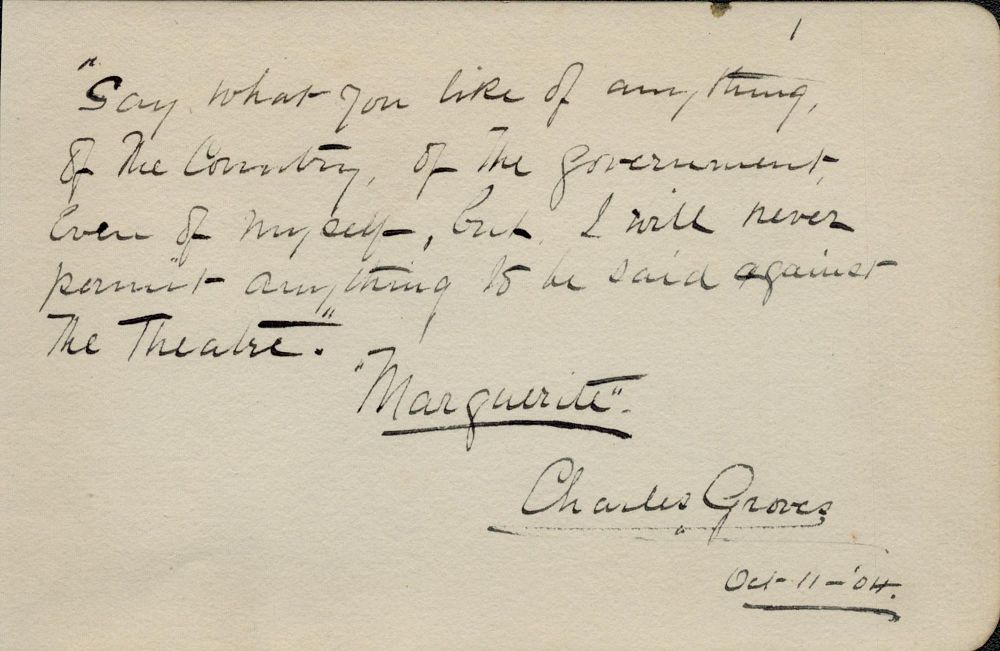 1
"Say what you like of anything,
of the Country, of the government,
Even of myself, but I will never
permit anything to be said against
The Theatre."
"Marguerite".
Charles Groves
Oct-11-'04.